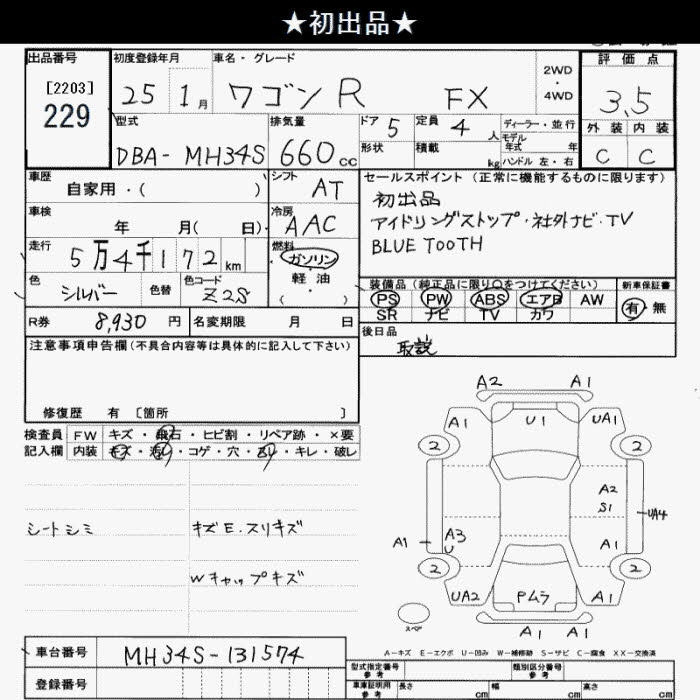 ★初出品★
出品番号 初度登録年月 車名・グレード 評価点
[2203] 229 25 1月 ワゴンR FX 2WD ・ 4WD 3.5
型式 排気量 ドア 5 定員 4人 ディーラー・並行 外装 内装
モデル年式 年
DBA-MH34S 660cc 形状 積載 kg ハンドル 左・右 C C
車歴 シフト セールスポイント(正常に機能するものに限ります)
自家用・( ) AT 初出品
車検 冷房 アイドリングストップ・社外ナビ・TV
年 月( 日) AAC BLUE TOOTH
走行 燃料
5万4千172km ガソリン
軽油
色 色替 色コード 装備品(純正品に限り○をつけてください) 新車保証書
シルバー Z2S ( ) PS PW ABS エアB AW 有・無
SR ナビ TV カワ
R券 8,930円 名変期限 月 日 後日品
取説
注意事項申告欄(不具合内容等は具体的に記入して下さい)
修復歴 有 〔箇所 〕
検査員 FW キズ・飛石・ヒビ割・リペア跡・×要
記入欄 内装 キズ・汚れ・コゲ・穴・スレ・キレ・破レ
A2 A1
A1 U1 UA1
2 2
A2
S1
UA4
シートシミ キズE.スリキズ
A1 A3 U A1
Wキャップキズ
2 2
UA2 PムラA1
スペア
A1 A1
A-キズ E-エクボ U-凹み W-補修跡 S-サビ C-腐食 XX-交換済
車台番号 MH34S-131574
型式指定番号 参考 類別区分番号 参考
登録番号 車庫証明用 参考 長さ cm 幅 cm 高さ cm